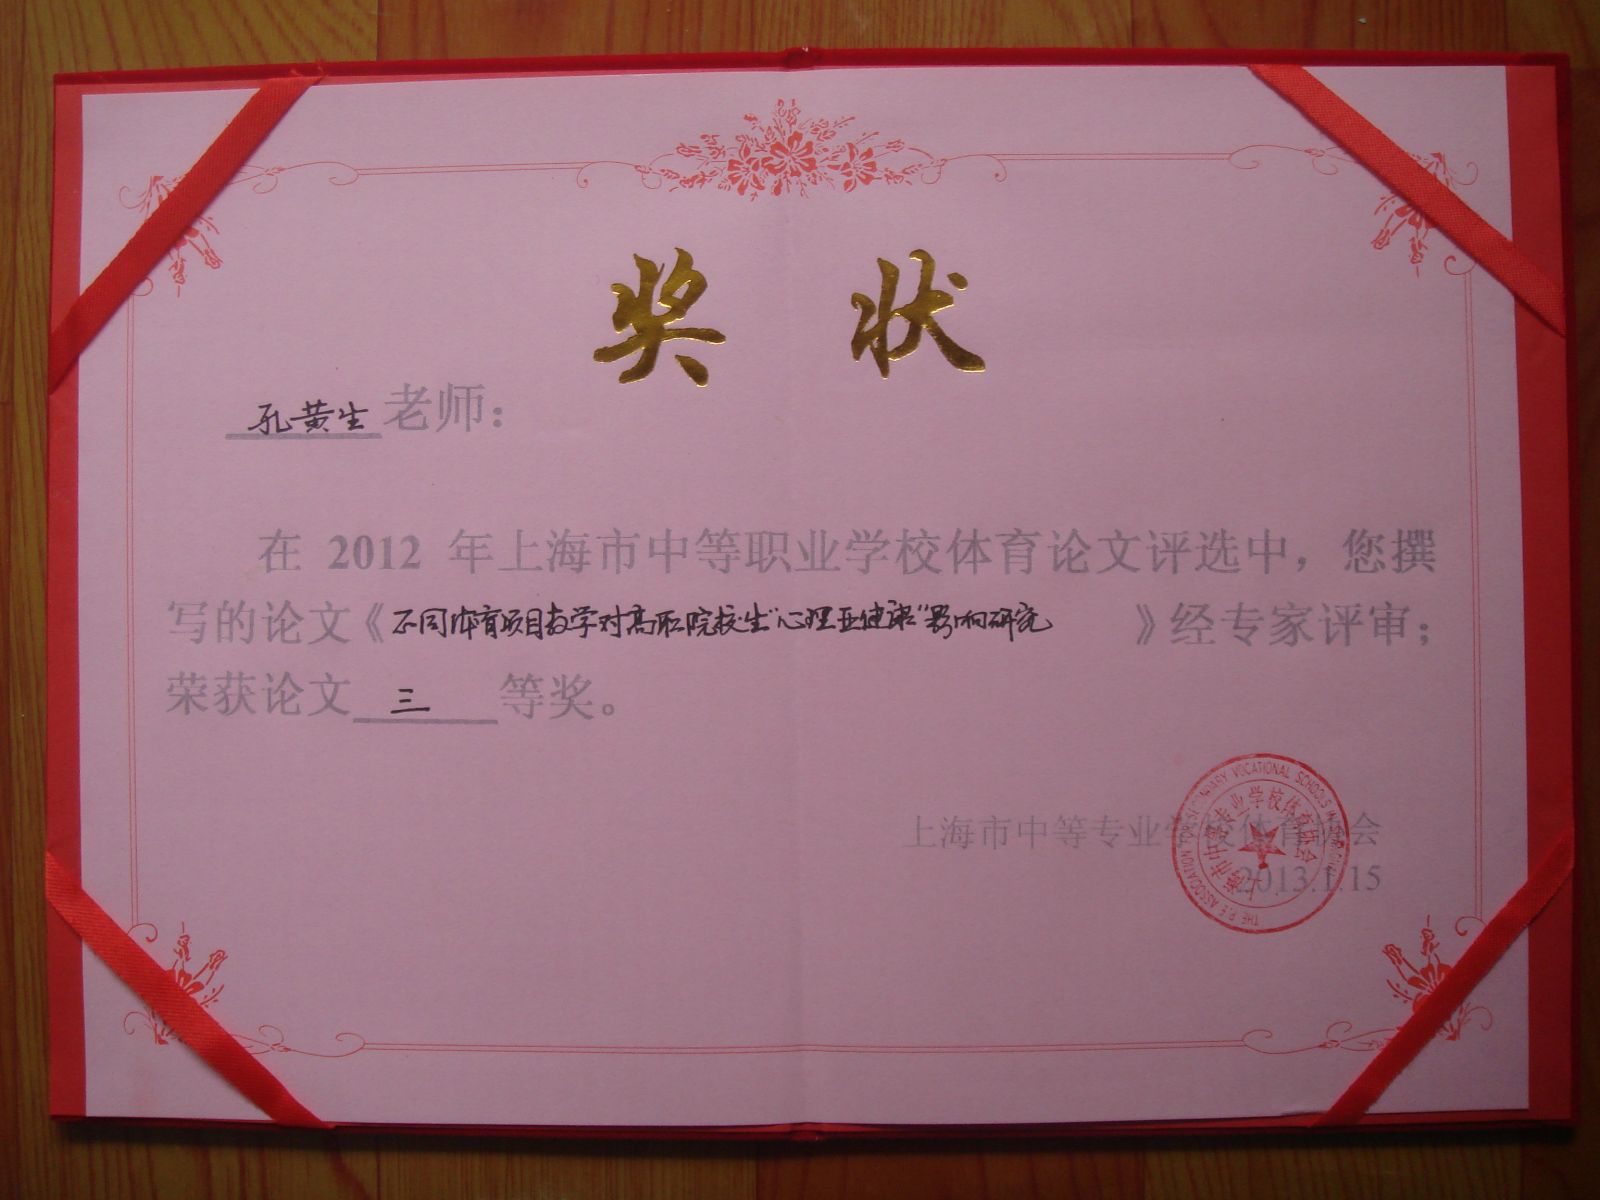 奖 状
孔黄生老师：
在 2012 年上海市中等职业学校体育论文评选中，您撰
写的论文《不同体育项目教学对高职院校生“心理亚健康”影响研究》经专家评审；
荣获论文 三 等奖。
上海市中等专业学校体育协会
2013.1.15
上海市中等专业学校体育协会